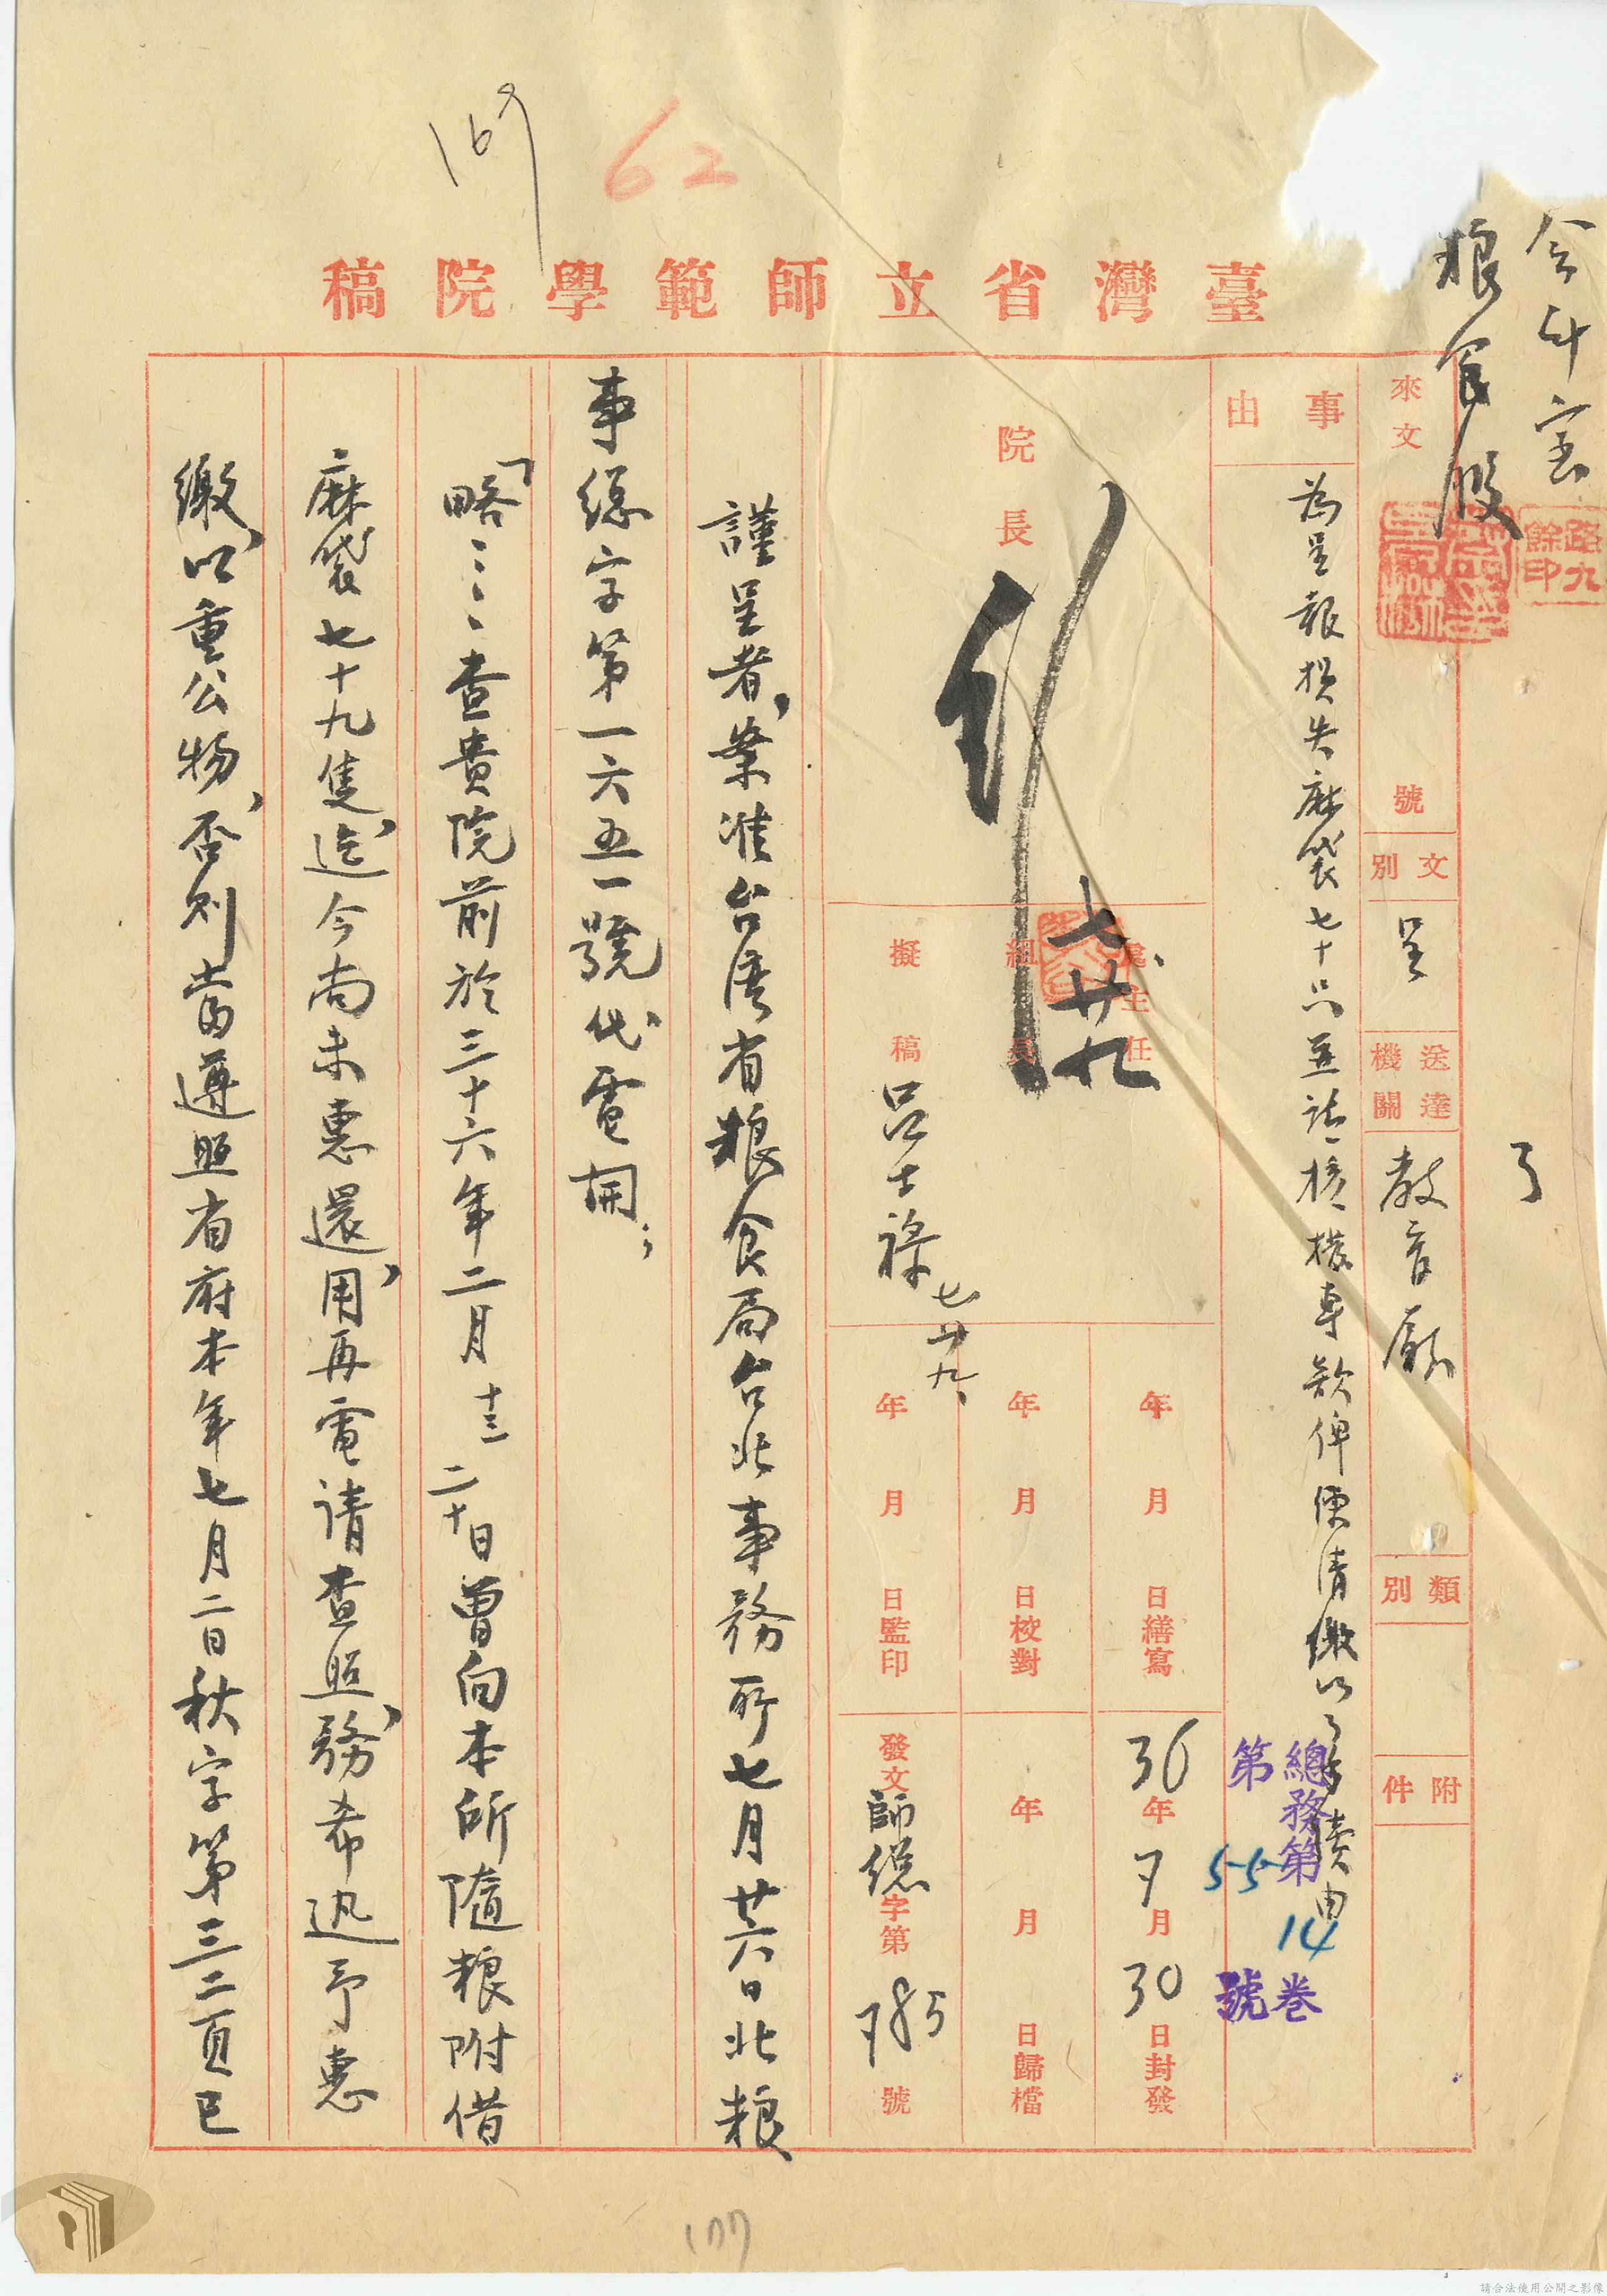 169
62
臺灣省立師範學院稿
粮食股
路九餘印
來文 號
文別 呈
送達機關 教育廳
類別
附件
事由
為呈報損失麻袋七十只並請核撥專款俾便清繳以了手續由
總務第14卷
第55號
院長
七廿九
處主任
組長
擬稿 呂士祿 七廿九
年 月 日繕寫
年 月 日校對
年 月 日監印
36年7月30日封發
年 月 日歸檔
發文師總字第785號
謹呈者,案准台灣省粮食局台北事務所七月廿六日北粮
事總字第一六五一號代電開;
「略……查貴院前於三十六年二月十三二十日曾向本所隨粮附借
麻袋七十九隻,迄今尚未惠還用,再電請查照,務希迅予惠
繳,以重公物,否則當遵照省府本年七月二日秋字第三二頁已
177
請合法使用公開之影像